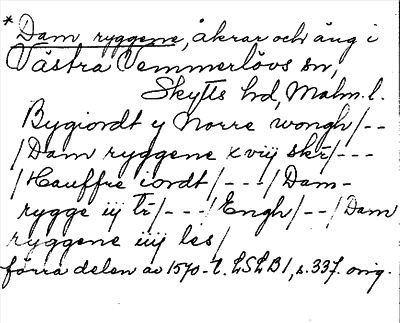 * Dam ryggene, åkrar och äng i
Västra Vemmerlövs sn,
Skytts hd, Malm. l.
Bygiordt y Norre wongh /--
/ Dam ryggene xviij skr̃ /---
/ Hauffre iordt /---/ Dam-
rygge iij tr̃ /---/ Engh /--/ Dam
ryggene iiij les /
förra delen av 1570-t. LSLB 1, s. 337. orig.